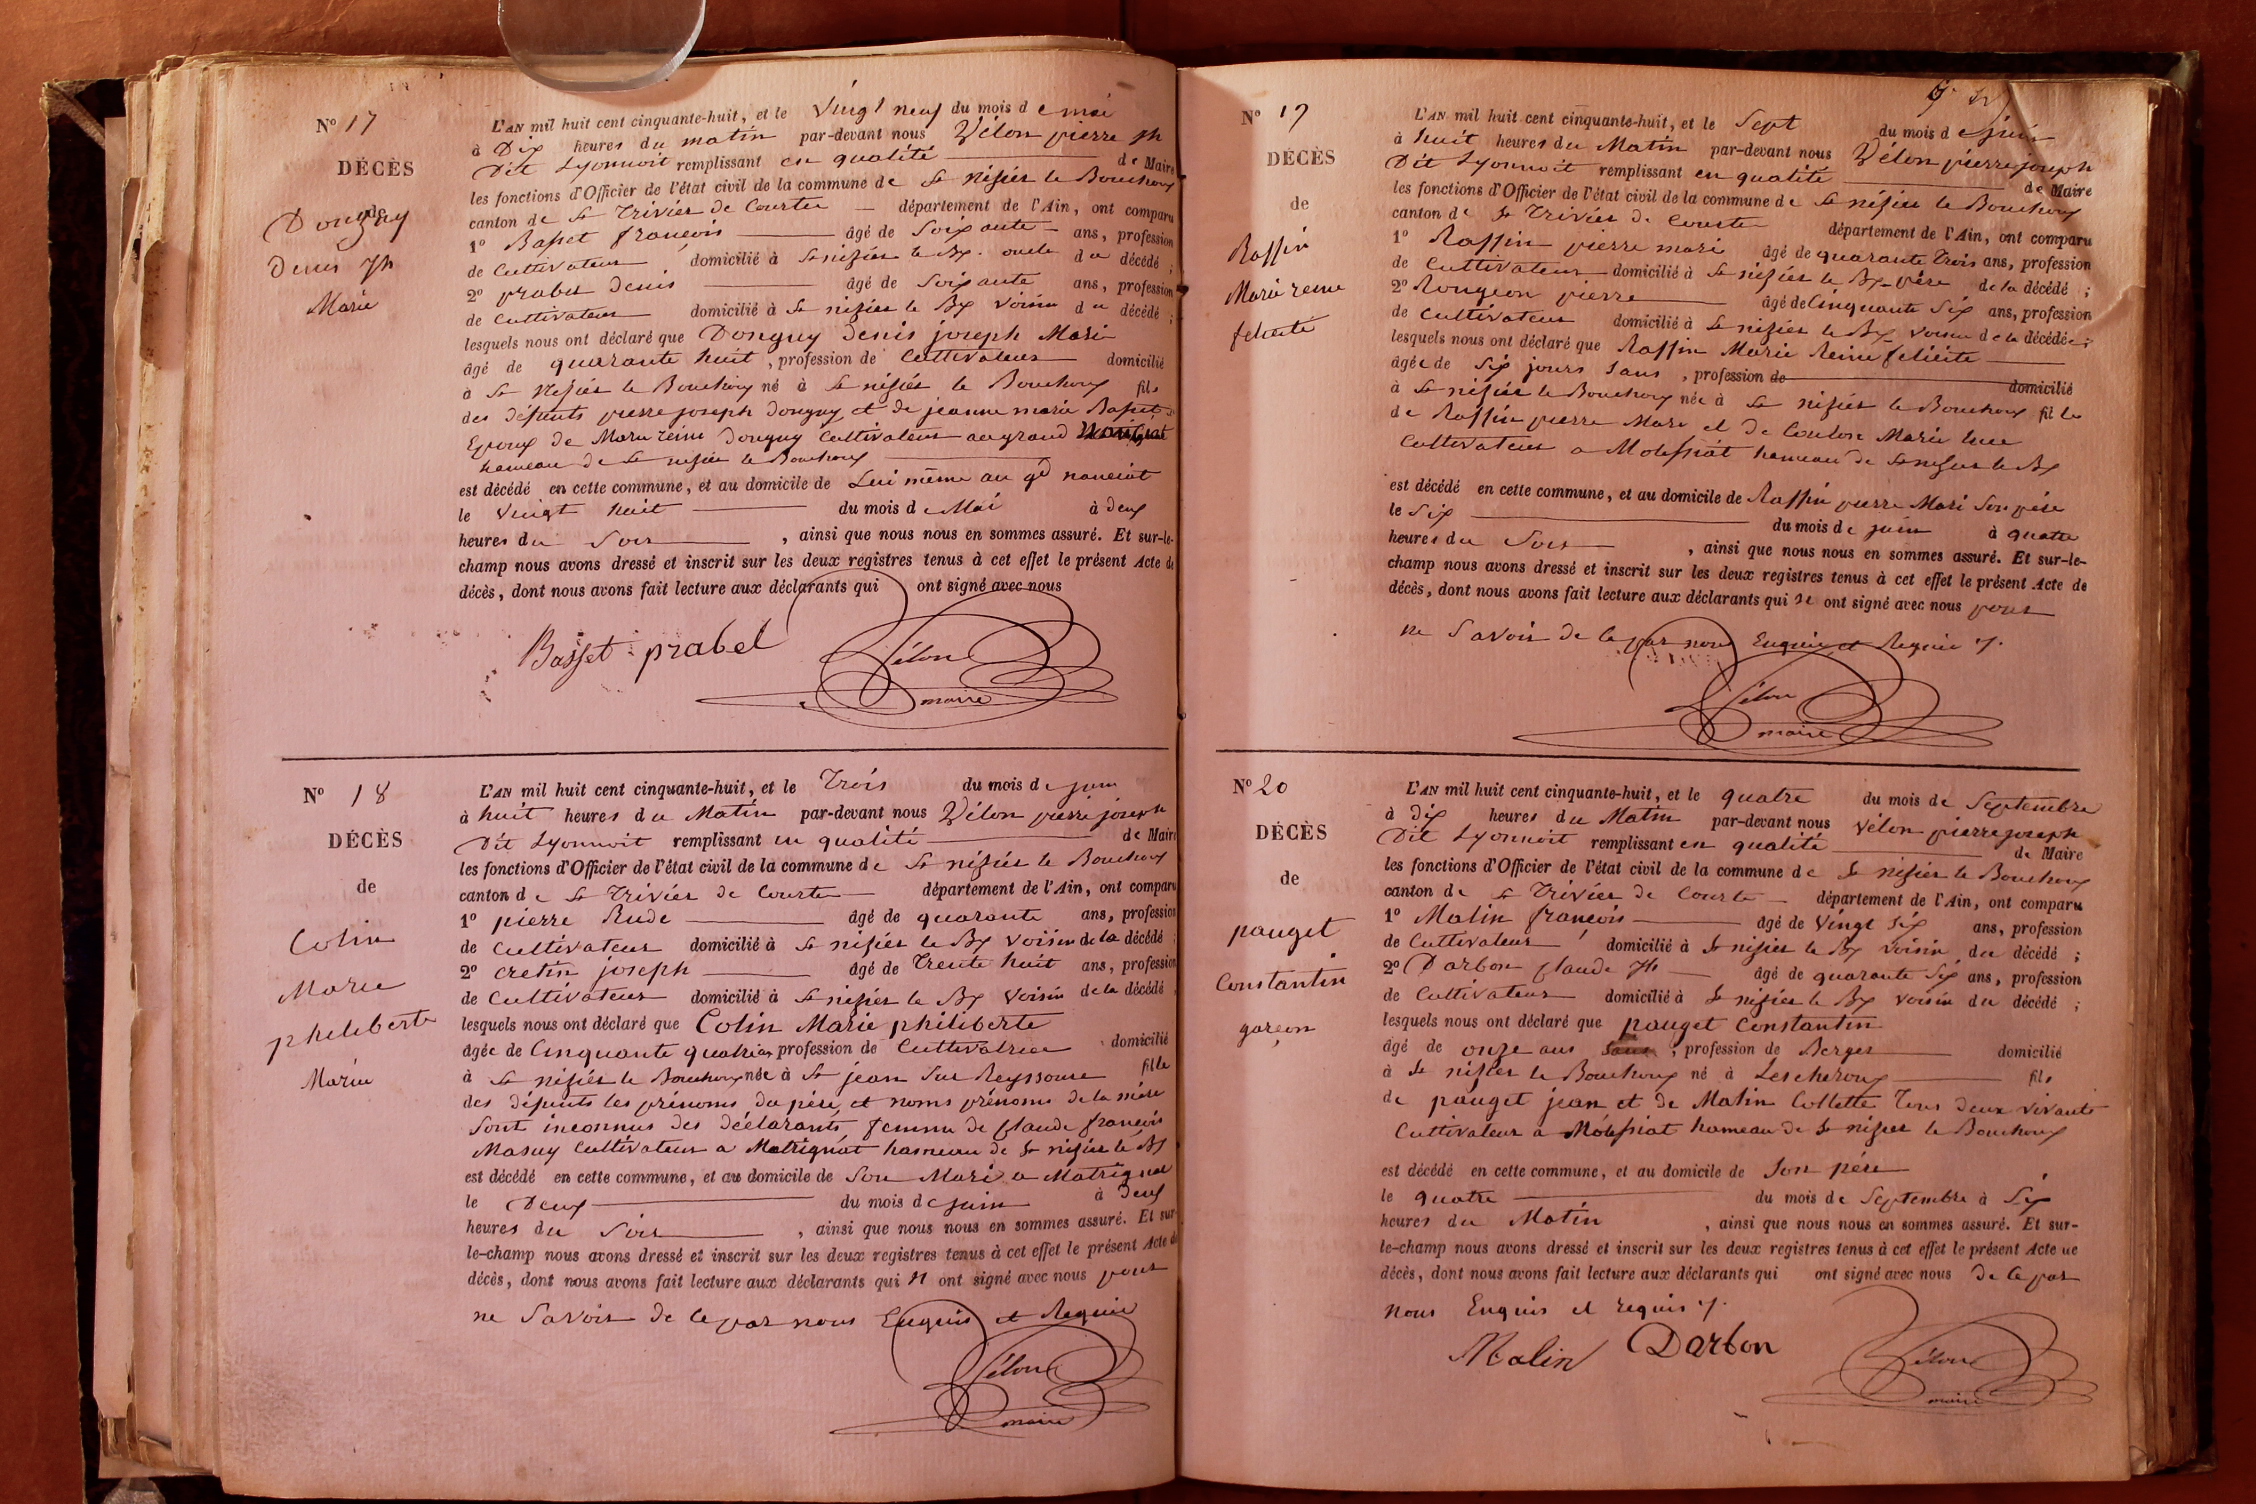 N° 17
DÉCÈS
de
Donguy
Denis Jh
Marie
L'AN mil huit cent cinquante-huit, et le vingt neuf du mois de mai
à Dix heures du matin par-devant nous Vélon pierre Jh
Dit Lyonnoit remplissant en qualité de Maire
les fonctions d'Officier de l'état civil de la commune de St nisier le Bouchoux
canton de St Trivier de Courte département de l'Ain, ont comparu
1° Basset françois âgé de Soixante ans, profession
de Cultivateur domicilié à St nizier le Bx. oncle du décédé ;
2° prabel denis âgé de Soixante ans, profession
de Cultivateur domicilié à St nizier le Bx voisin du décédé ;
lesquels nous ont déclaré que Donguy Denis joseph Marie
âgé de quarante huit, profession de Cultivateur domicilié
à St Nisier le Bouchoux né à St nisier le Bouchoux fils
des défunts pierre joseph donguy et de jeanne marie Basset
Epoux de Marie reine donguy Cultivateur au grand
hameau de St nisier le Bouchoux
est décédé en cette commune, et au domicile de Lui même au gd
le Vingt huit du mois de Mai à deux
heures du Soir, ainsi que nous nous en sommes assuré. Et sur-le-
champ nous avons dressé et inscrit sur les deux registres tenus à cet effet le présent Acte de
décès, dont nous avons fait lecture aux déclarants qui ont signé avec nous
Basset prabel Vélon
maire
N° 18
DÉCÈS
de
Colin
Marie
philiberte
Marie
L'AN mil huit cent cinquante-huit, et le Trois du mois de juin
à huit heures du Matin par-devant nous Vélon pierre joseph
Dit Lyonnoit remplissant en qualité de Maire
les fonctions d'Officier de l'état civil de la commune de St nisier le Bouchoux
canton de St Trivier de Courte département de l'Ain, ont comparu
1° pierre Rude âgé de quarante ans, profession
de Cultivateur domicilié à St nisier le Bx voisin de la décédé ;
2° cretin joseph âgé de Trente huit ans, profession
de Cultivateur domicilié à St nisier le Bx Voisin de la décédé
lesquels nous ont déclaré que Colin Marie philiberte
âgée de Cinquante quatre profession de Cultivatrice domicilié
à St nisier le Bouchoux née à St jean Sur Reyssouse fille
des défunts les prénoms du père, et noms prénoms de la mère
Sont inconnus des déclarants femme de Claude françois
Masuy Cultivateur a Matrignat hameau de St nisier le Bx
est décédé en cette commune, et au domicile de Son Mari a Matrignat
le Deux du mois de juin à Deux
heures du Soir, ainsi que nous nous en sommes assuré. Et sur-
le-champ nous avons dressé et inscrit sur les deux registres tenus à cet effet le présent Acte de
décès, dont nous avons fait lecture aux déclarants qui n ont signé avec nous pour
ne Savoir de ce par nous Enquis et Requis
Vélon
maire
N° 19
DÉCÈS
de
Raffin
Marie reine
felicité
L'AN mil huit cent cinquante-huit, et le Sept du mois de juin
à huit heures du Matin par-devant nous Vélon pierre joseph
Dit Lyonnoit remplissant en qualité de Maire
les fonctions d'Officier de l'état civil de la commune de St nisier le Bouchoux
canton de St Trivier de Courte département de l'Ain, ont comparu
1° Raffin pierre mari âgé de quarante Trois ans, profession
de Cultivateur domicilié à St nisier le Bx père de la décédé ;
2° Rongeon pierre âgé de Cinquante Six ans, profession
de Cultivateur domicilié à St nisier le Bx voisin de la décédée ;
lesquels nous ont déclaré que Raffin Marie Reine felicité
âgée de Six jours Sans, profession de domicilié
à St nisier le Bouchoux née à St nisier le Bouchoux fille
de Raffin pierre Mari et de Coulon Marie
Cultivateur a Molefsiat hameau de St nisier le Bx
est décédé en cette commune, et au domicile de Raffin pierre Mari Son père
le Six du mois de juin à quatre
heures du Soir, ainsi que nous nous en sommes assuré. Et sur-le-
champ nous avons dressé et inscrit sur les deux registres tenus à cet effet le présent Acte de
décès, dont nous avons fait lecture aux déclarants qui n ont signé avec nous pour
ne Savoir de ce par nous Enquis et Requis
Vélon
maire
N° 20
DÉCÈS
de
pauget
Constantin
garçon
L'AN mil huit cent cinquante-huit, et le quatre du mois de Septembre
à dix heures du Matin par-devant nous Vélon pierre joseph
Dit Lyonnoit remplissant en qualité de Maire
les fonctions d'Officier de l'état civil de la commune de St nisier le Bouchoux
canton de St Trivier de Courte département de l'Ain, ont comparu
1° Malin françois âgé de Vingt Six ans, profession
de Cultivateur domicilié à St nisier le Bx voisin du décédé ;
2° Darbon Claude Jh âgé de quarante Six ans, profession
de Cultivateur domicilié à St nisier le Bx voisin du décédé ;
lesquels nous ont déclaré que pauget Constantin
âgé de onze ans, profession de Berger domicilié
à St nisier le Bouchoux né à Lescheroux fils
de pauget jean et de Malin Collette Tous deux vivants
Cultivateur a Molefsiat hameau de St nisier le Bouchoux
est décédé en cette commune, et au domicile de Son père
le quatre du mois de Septembre à Six
heures du Matin, ainsi que nous nous en sommes assuré. Et sur-
le-champ nous avons dressé et inscrit sur les deux registres tenus à cet effet le présent Acte de
décès, dont nous avons fait lecture aux déclarants qui ont signé avec nous de ce par
nous Enquis et requis
Malin Darbon Vélon
maire